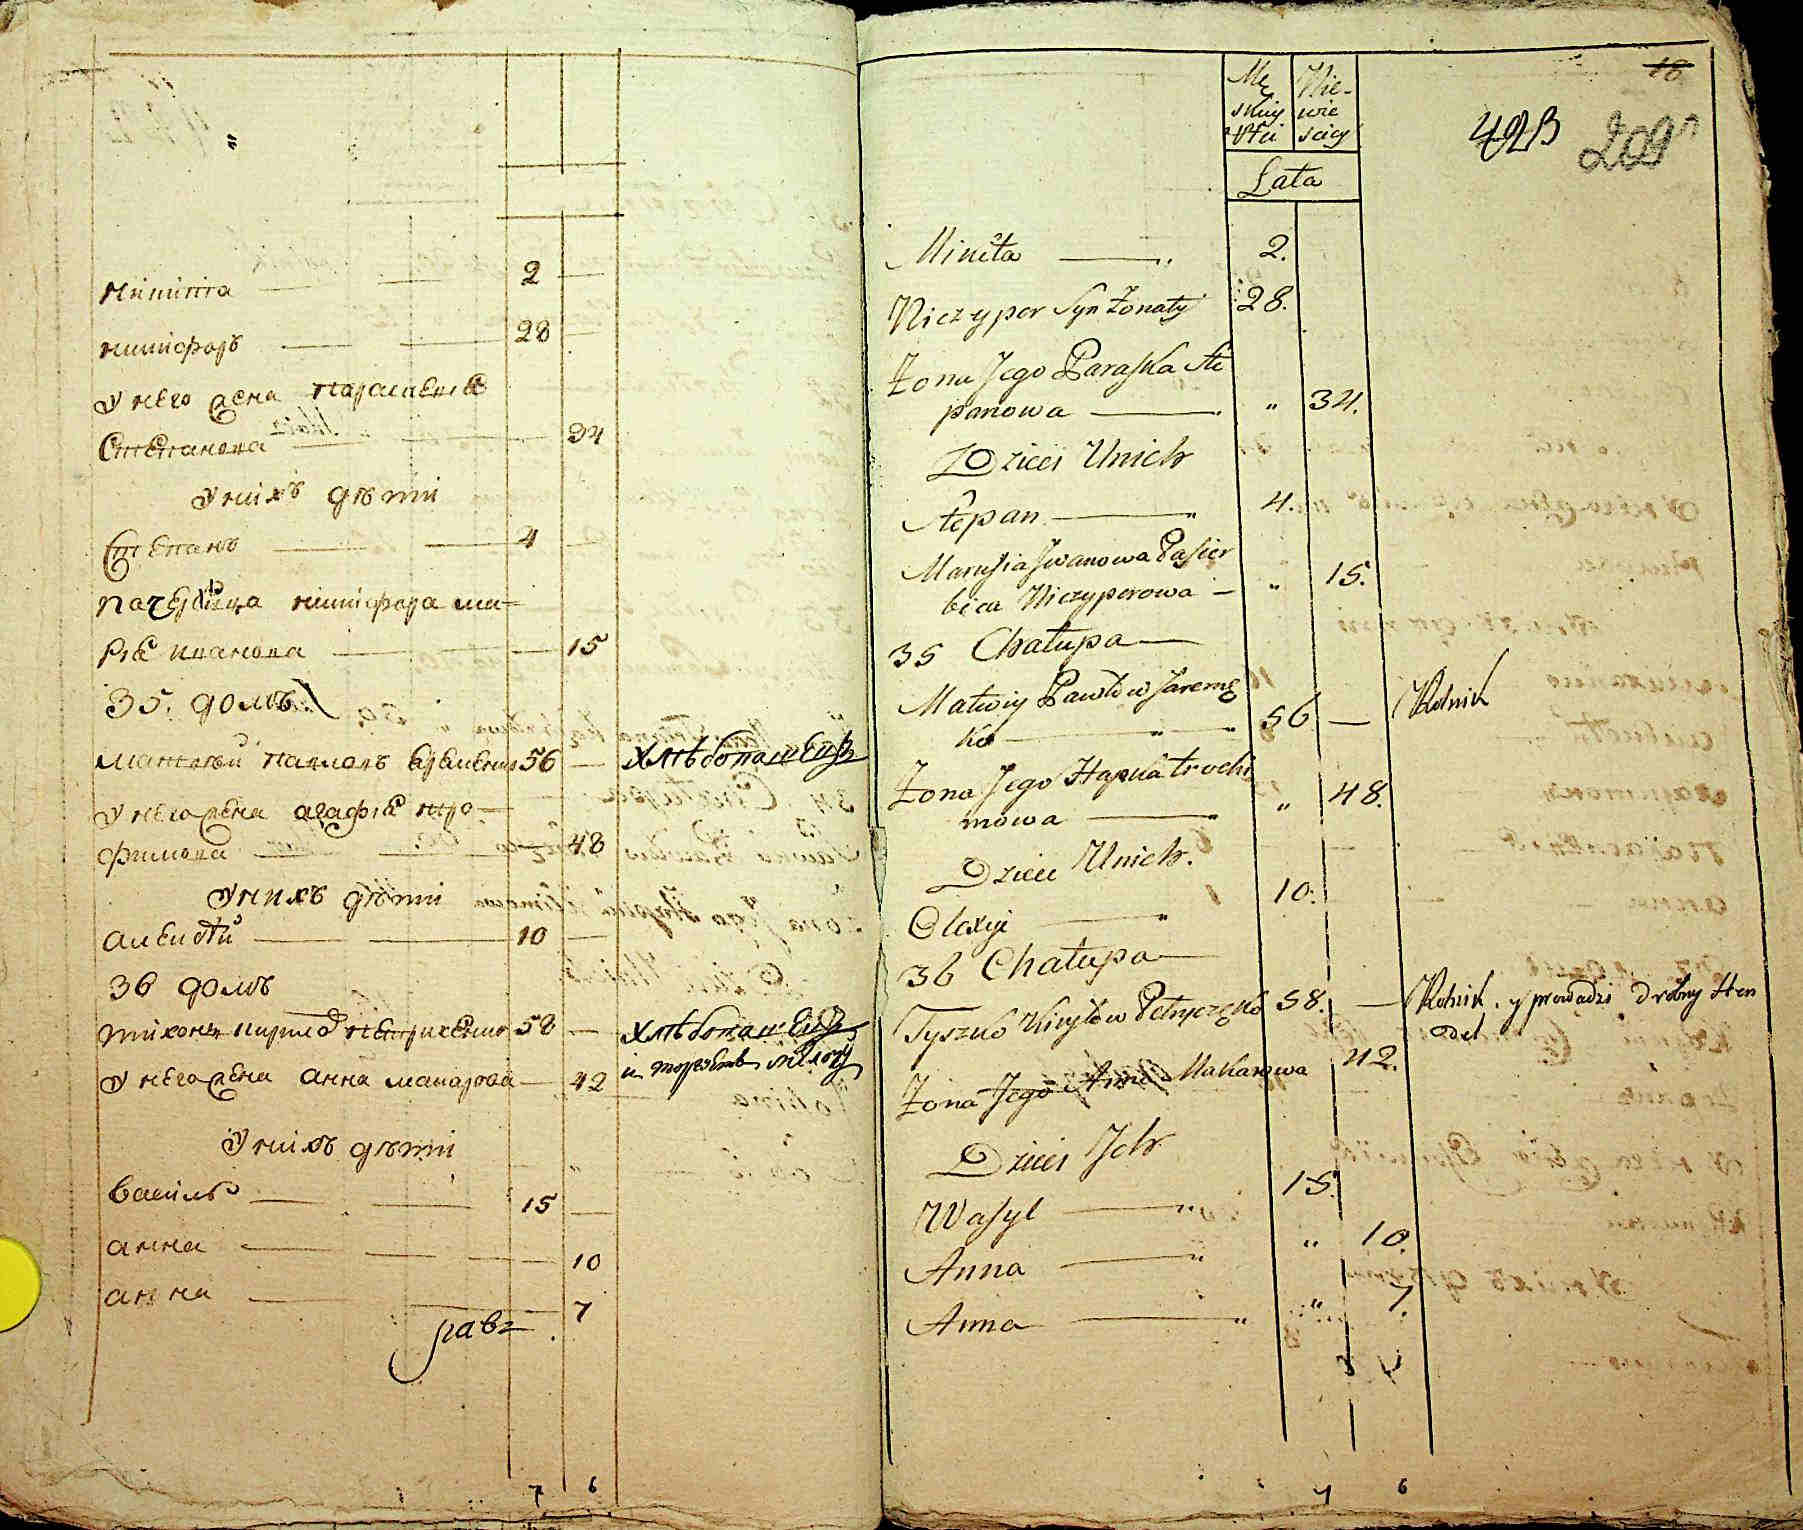 никита 2
никифоръ 28
у него жена параскевиѣ
Степанова 34
У нихъ дѣти
Степанъ 4
падчерица никифора ма-
риѣ иванова 15
35. домъ
матвѣй павловъ еременко 56 хлѣбопашецъ
у него жена агафиѣ тро-
фимова 48
У нихъ дѣти
алексѣй 10
36 домъ
тихонъ кириловъ петриченко 58 хлѣбопашецъ
и торгъ мелочной
у него жена анна макарова 42
У нихъ дѣти
василь 15
анна 10
анна 7
7 6
Mę skiey płci
Nie- wie sciey
Lata
18
209
Mikita 2.
Niczypor Syn Żonaty 28.
Żona Jego Paraska Ste
panowa " 34.
Dzieci Unich
Stepan 4.
Marysia Jwanowa Pasier
bica Niczyporowa " 15.
35 Chałupa
Matwiy Pawłów Jaremę
ko 56 Rolnik
Żona Jego Hapka trochi
mowa " 48.
Dzieci Unich.
Olexiy 10.
36 Chałupa
Tyszko Kiryłów Petryczęko 58. Rolnik, y prowadzi Drobny Han
del
Żona Jego Anna Makarowa 42.
Dzieci Jch
Wasyl 15.
Anna " 10.
Anna " 7.
7 6